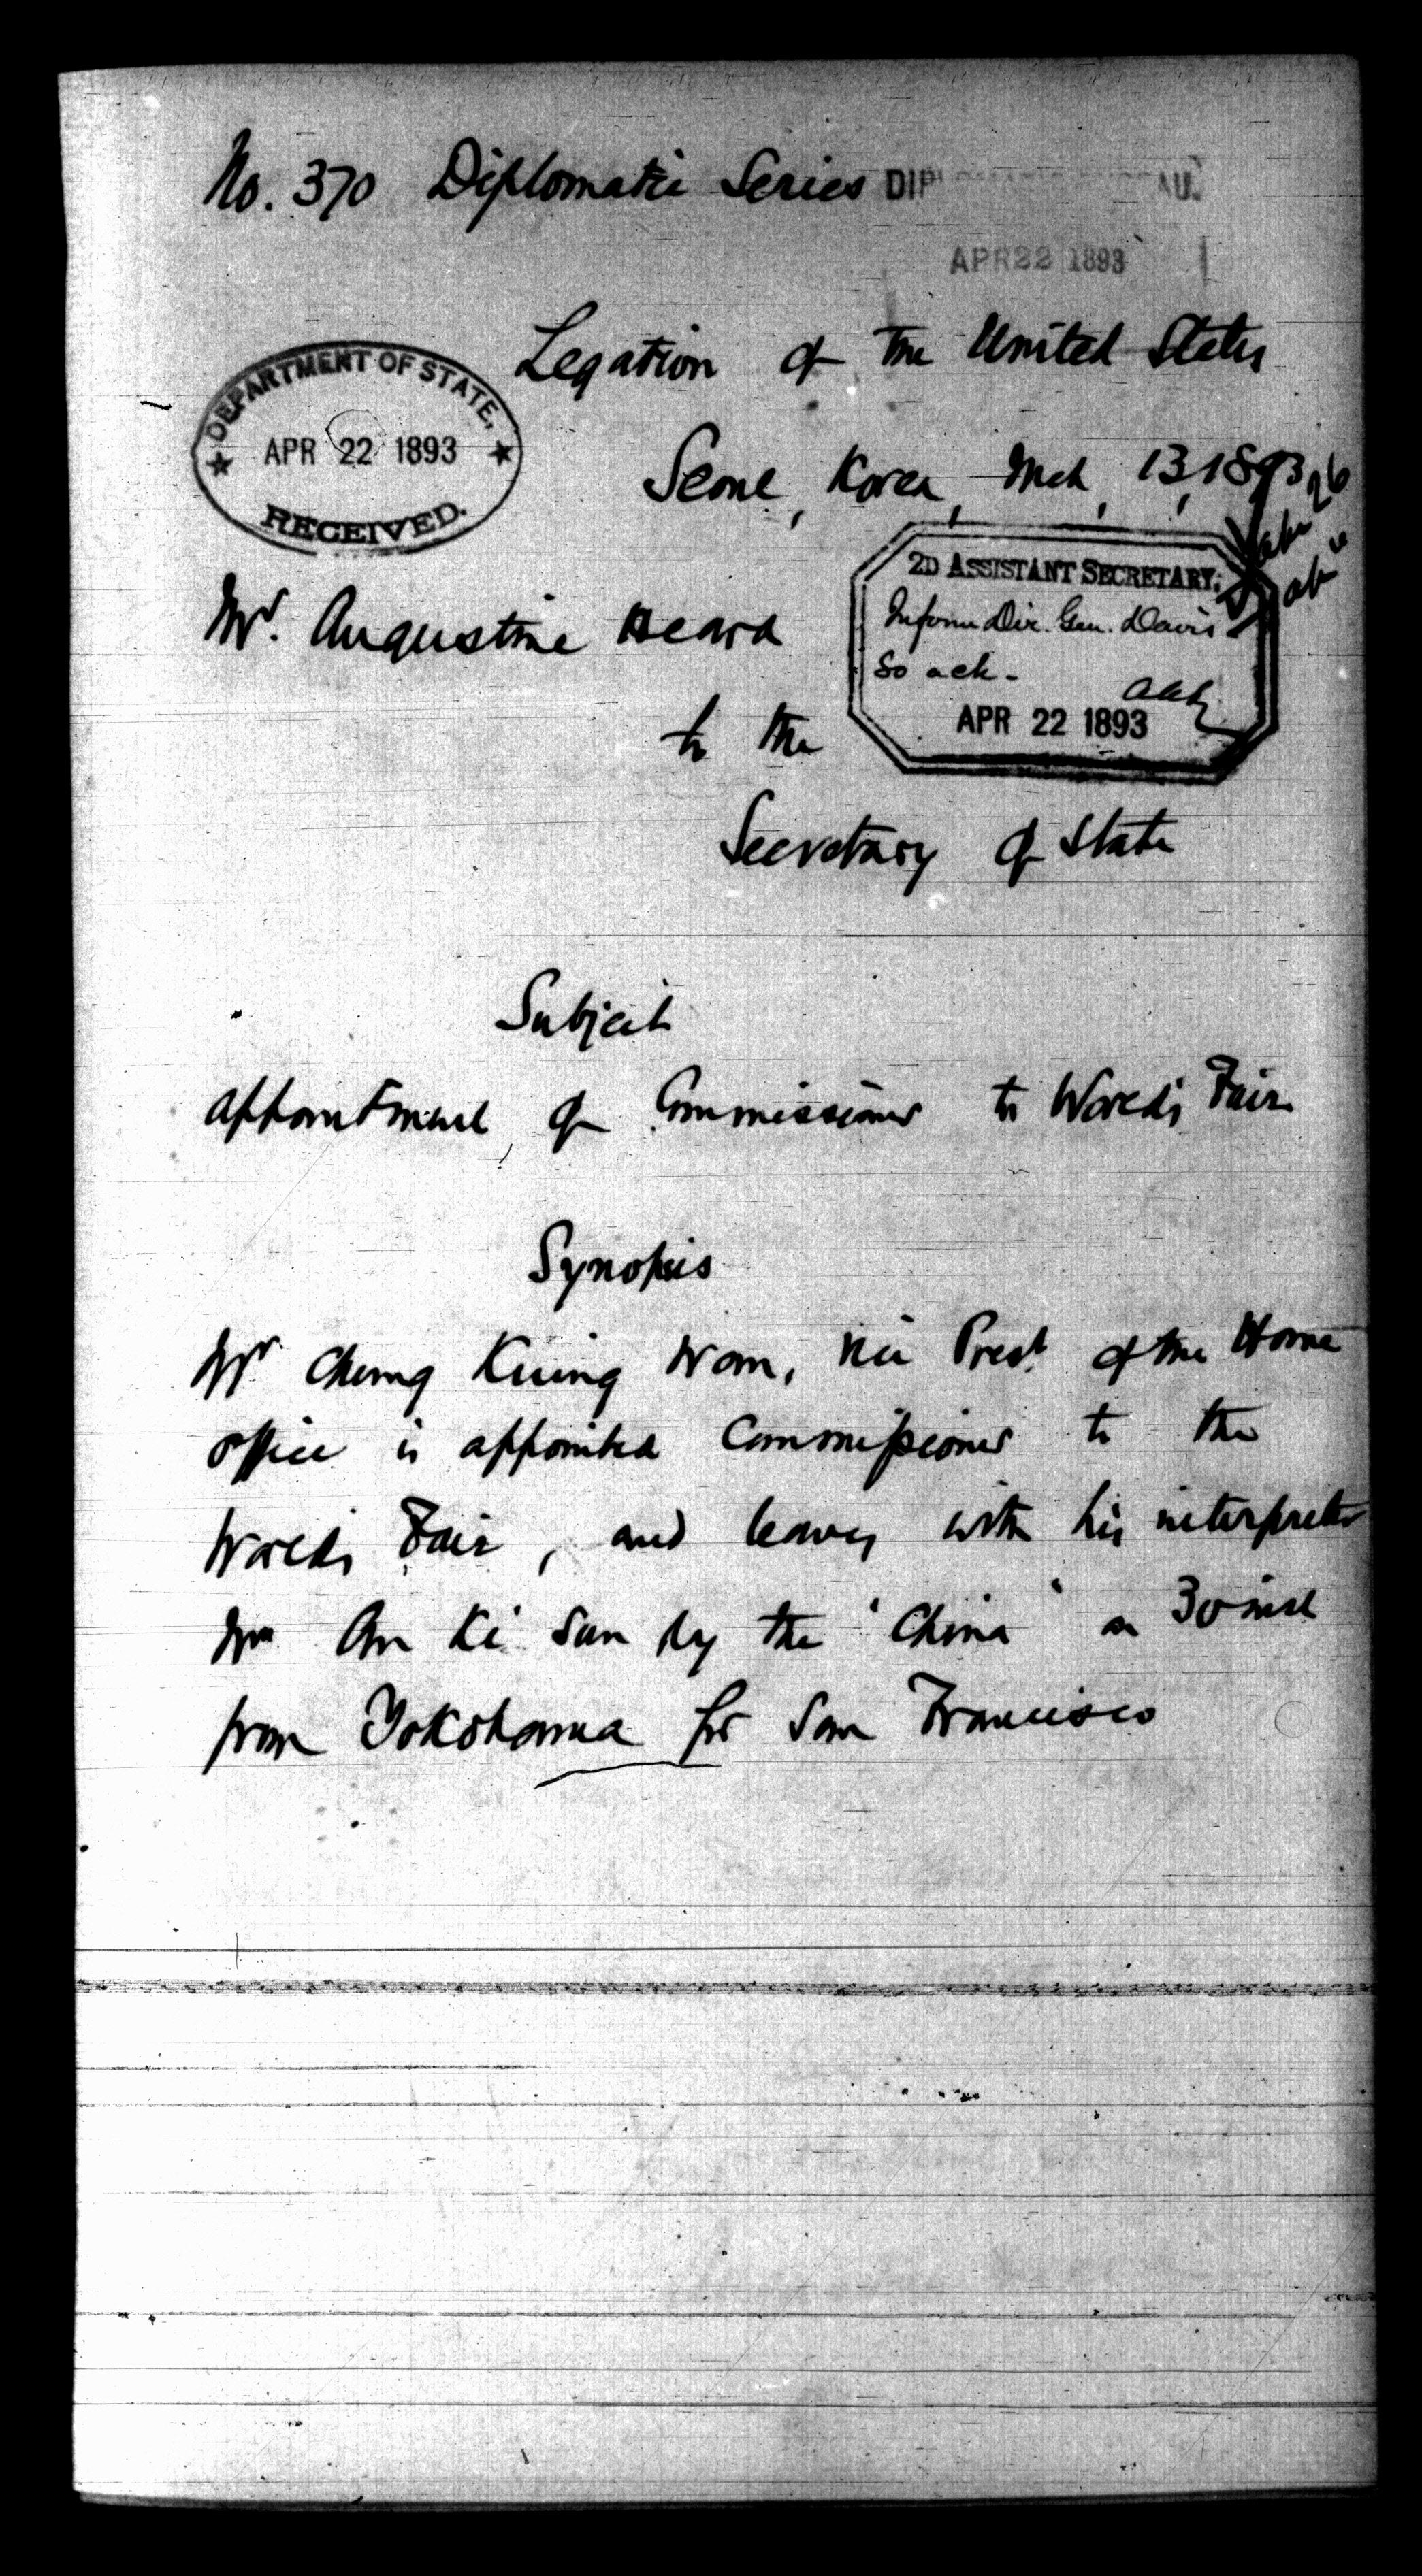 No. 370 Diplomatic Series
APR 22 1893
Legation of the United States
DEPARTMENT OF STATE,
APR 22 1893
RECEIVED.
Seoul, Korea, Mch, 13, 1893
2D ASSISTANT SECRETARY,
Inform Dir. Gen. Davis
So ack.
APR 22 1893
Mr. Augustine Heard
to the
Secretary of State
Subject
Appointment of Commissioner to World's Fair
Synopsis
Mr Cheung Kuing Won, Vice Prest of the Home
office is appointed Commissioner to the
World's Fair, and leaves with his interpreter
Mr An Ki Sun by the 'China' on 30 inst
from Yokohama for San Francisco